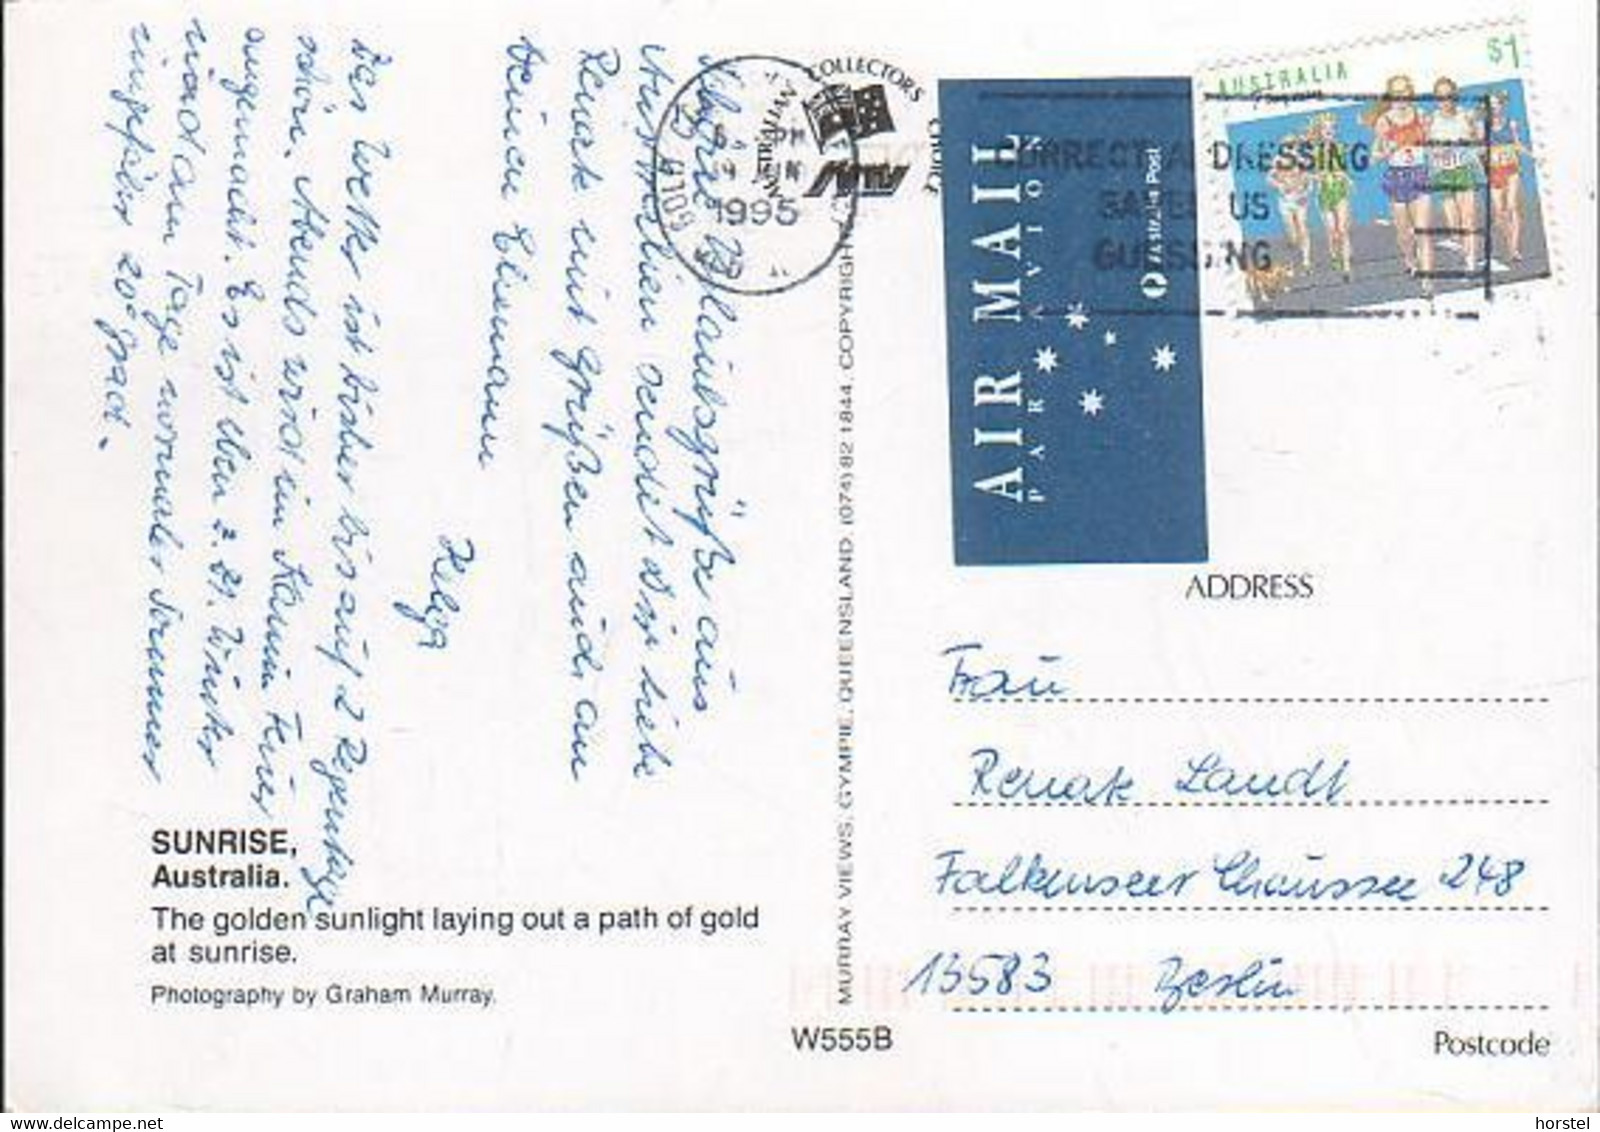 Schöne Urlaubsgrüße aus
Australien sendet Dir liebe
Renate mit Grüßen auch an
Deinen Ehemann
Helga
Das Wetter ist bisher bis auf 2 Regentage
schön. Abends wird im Kamin Feuer
angemacht. Es ist eben z. Zt. Winter
und am Tage normaler Sommer
ungefähr 20° Grad.
SUNRISE,
Australia.
The golden sunlight laying out a path of gold
at sunrise.
Photography by Graham Murray.
MURRAY VIEWS, GYMPIE, QUEENSLAND. (074) 82 1844. COPYRIGHT
W555B
1995
AUSTRALIAN
COLLECTORS
CHOICE
AIR MAIL
PAR AVION
Australia Post
CORRECT ADDRESSING
SAVES US
GUESSING
AUSTRALIA
$1
ADDRESS
Frau
Renate Landt
Falkenseer Chaussee 248
13583 Berlin
Postcode
horstel